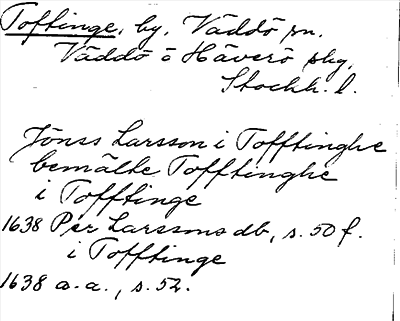 Tofftinge, by, Väddö sn.
Väddö o Häverö skg,
Stockh. l.
Jönss Larsson i Tofftinghe
bemälte Tofftinghe
i Tofftinge
1638 Per Larssons db, s. 50 f.
i Tofftinge
1638 a.a., s. 52.